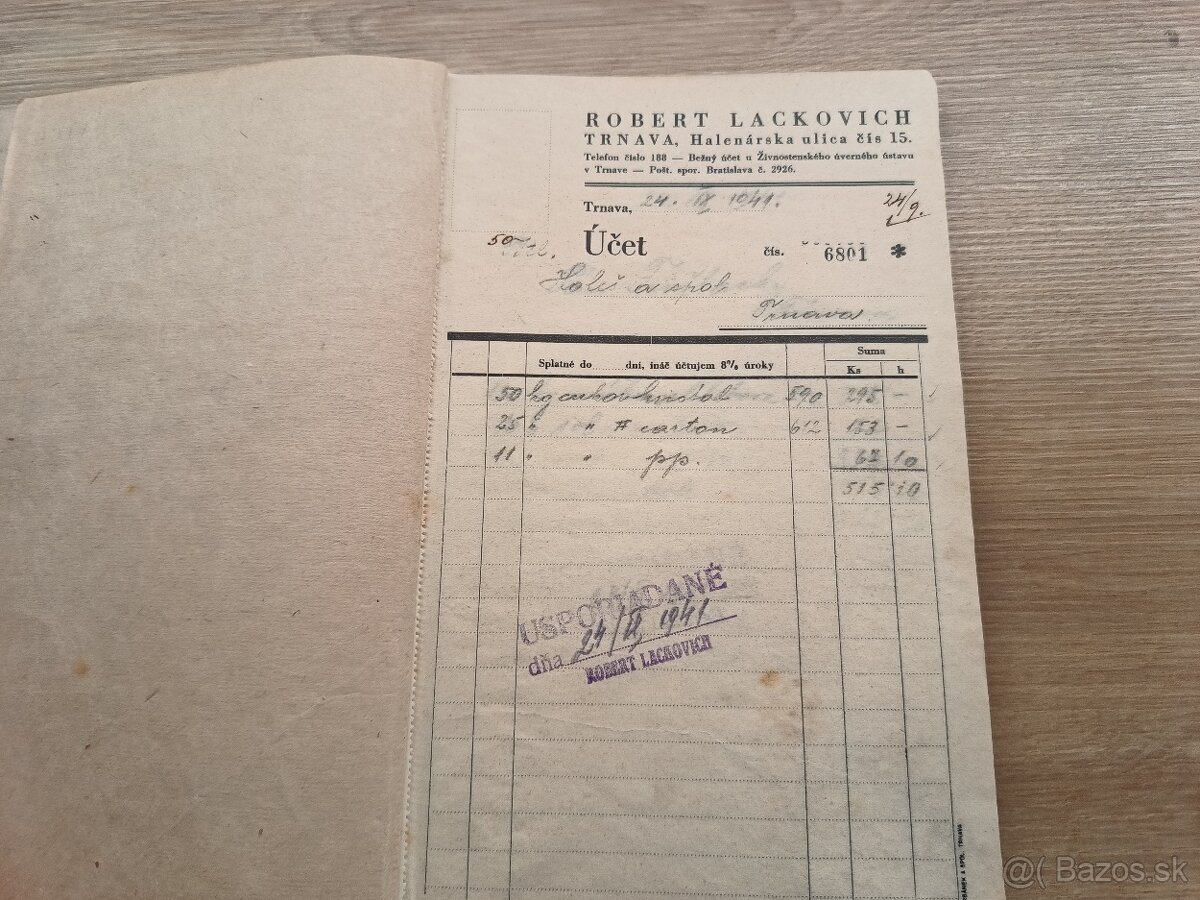 ROBERT LACKOVICH
TRNAVA, Halenárska ulica čís 15.
Telefon číslo 188 — Bežný účet u Živnostenského úverného ústavu
v Trnave — Pošt. spor. Bratislava č. 2926.
Trnava, 24. IX 1941.
24/9.
50
Účet čís. 6801 *
a spol
Trnava
Splatné do dní, ináč účtujem 8% úroky
Suma
Ks h
50 kg cukor krištál 590 295 —
25 " " carton 612 153 —
11 " " pp. 67 10
515 10
USPORIADANÉ
dňa 24/IX 1941
ROBERT LACKOVICH
A SPOL. TRNAVA
@( Bazos.sk